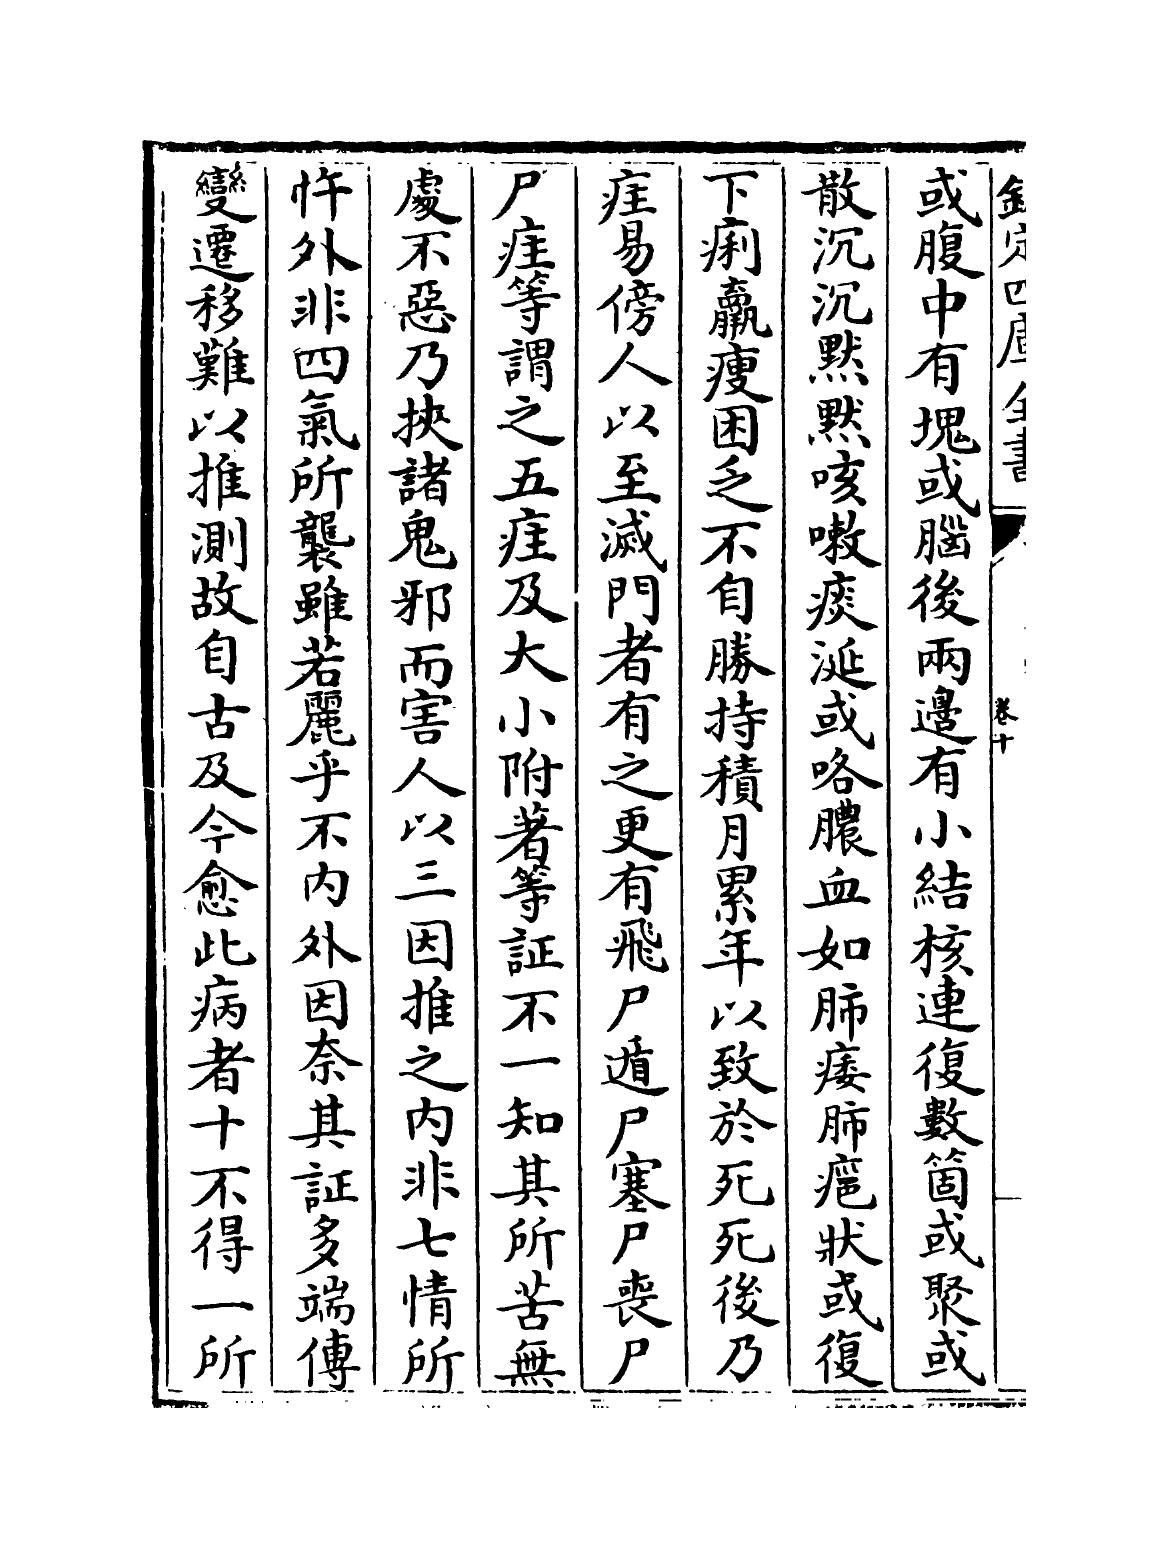 欽定四庫全書
卷十
或腹中有塊或腦後兩邊有小結核連復數箇或聚或
散沉沉默默咳嗽痰涎或咯膿血如肺痿肺瘡狀或復
下痢羸瘦困乏不自勝持積月累年以致於死死後乃
疰易傍人以至滅門者有之更有飛尸遁尸寒尸喪尸
尸疰等謂之五疰及大小附著等証不一知其所苦無
處不惡乃挾諸鬼邪而害人以三因推之內非七情所
忤外非四氣所襲雖若麗乎不內外因奈其証多端傳
變遷移難以推測故自古及今愈此病者十不得一所